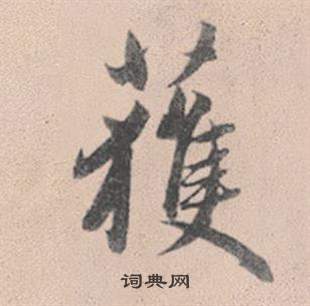 獲
词典网